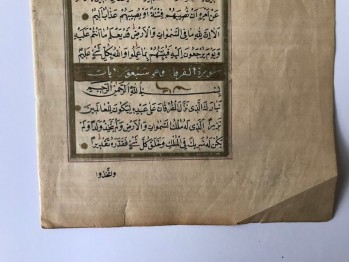 عَنْ أَمْرِهِ أَنْ تُصِيبَهُمْ فِتْنَةٌ أَوْ يُصِيبَهُمْ عَذَابٌ أَلِيمٌ
أَلَا إِنَّ لِلَّهِ مَا فِي السَّمٰوَاتِ وَالْأَرْضِ قَدْ يَعْلَمُ مَا أَنْتُمْ عَلَيْهِ
وَيَوْمَ يُرْجَعُونَ إِلَيْهِ فَيُنَبِّئُهُمْ بِمَا عَمِلُوا وَاللَّهُ بِكُلِّ شَيْءٍ عَلِيمٌ
سورة الفرقان سبعون آيات
بِسْمِ اللَّهِ الرَّحْمٰنِ الرَّحِيمِ
تَبَارَكَ الَّذِي نَزَّلَ الْفُرْقَانَ عَلَى عَبْدِهِ لِيَكُونَ لِلْعَالَمِينَ
نَذِيرًا الَّذِي لَهُ مُلْكُ السَّمٰوَاتِ وَالْأَرْضِ وَلَمْ يَتَّخِذْ وَلَدًا وَلَمْ
يَكُنْ لَهُ شَرِيكٌ فِي الْمُلْكِ وَخَلَقَ كُلَّ شَيْءٍ فَقَدَّرَهُ تَقْدِيرًا
واتخذوا